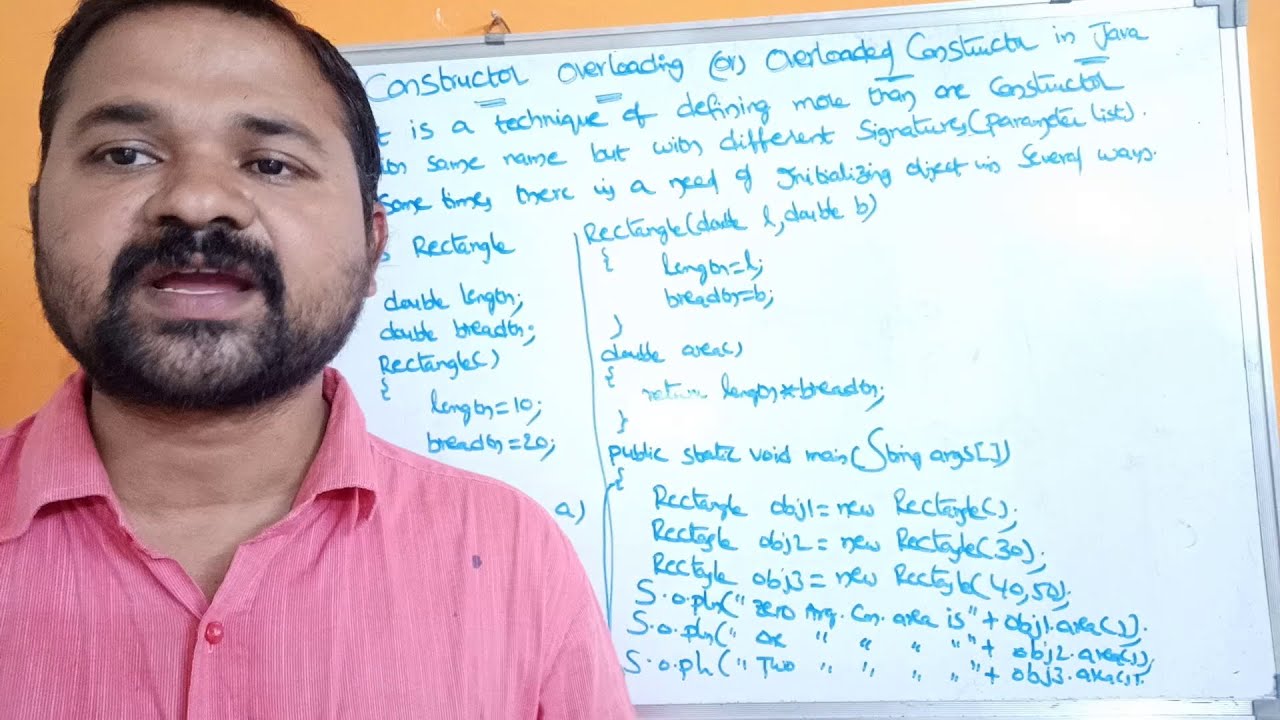 Constructor Overloading (or) Overloaded Constructor in Java
t is a technique of defining more than one Constructor
with same name but with different Signatures(parameter list).
Some times there is a need of Initializing object in Several ways.
Rectangle
double length;
double breadth;
Rectangle()
{
length=10;
breadth=20;
a)
Rectangle(double l,double b)
{
length=l;
breadth=b;
}
double area()
{
return length*breadth;
}
public static void main(String args[])
{
Rectangle obj1=new Rectangle();
Rectangle obj2=new Rectangle(30);
Rectangle obj3=new Rectangle(40,50);
S.o.pln("Zero Arg. Con. area is"+obj1.area());
S.o.pln("One " " " "+obj2.area());
S.o.pln("Two " " " "+obj3.area());